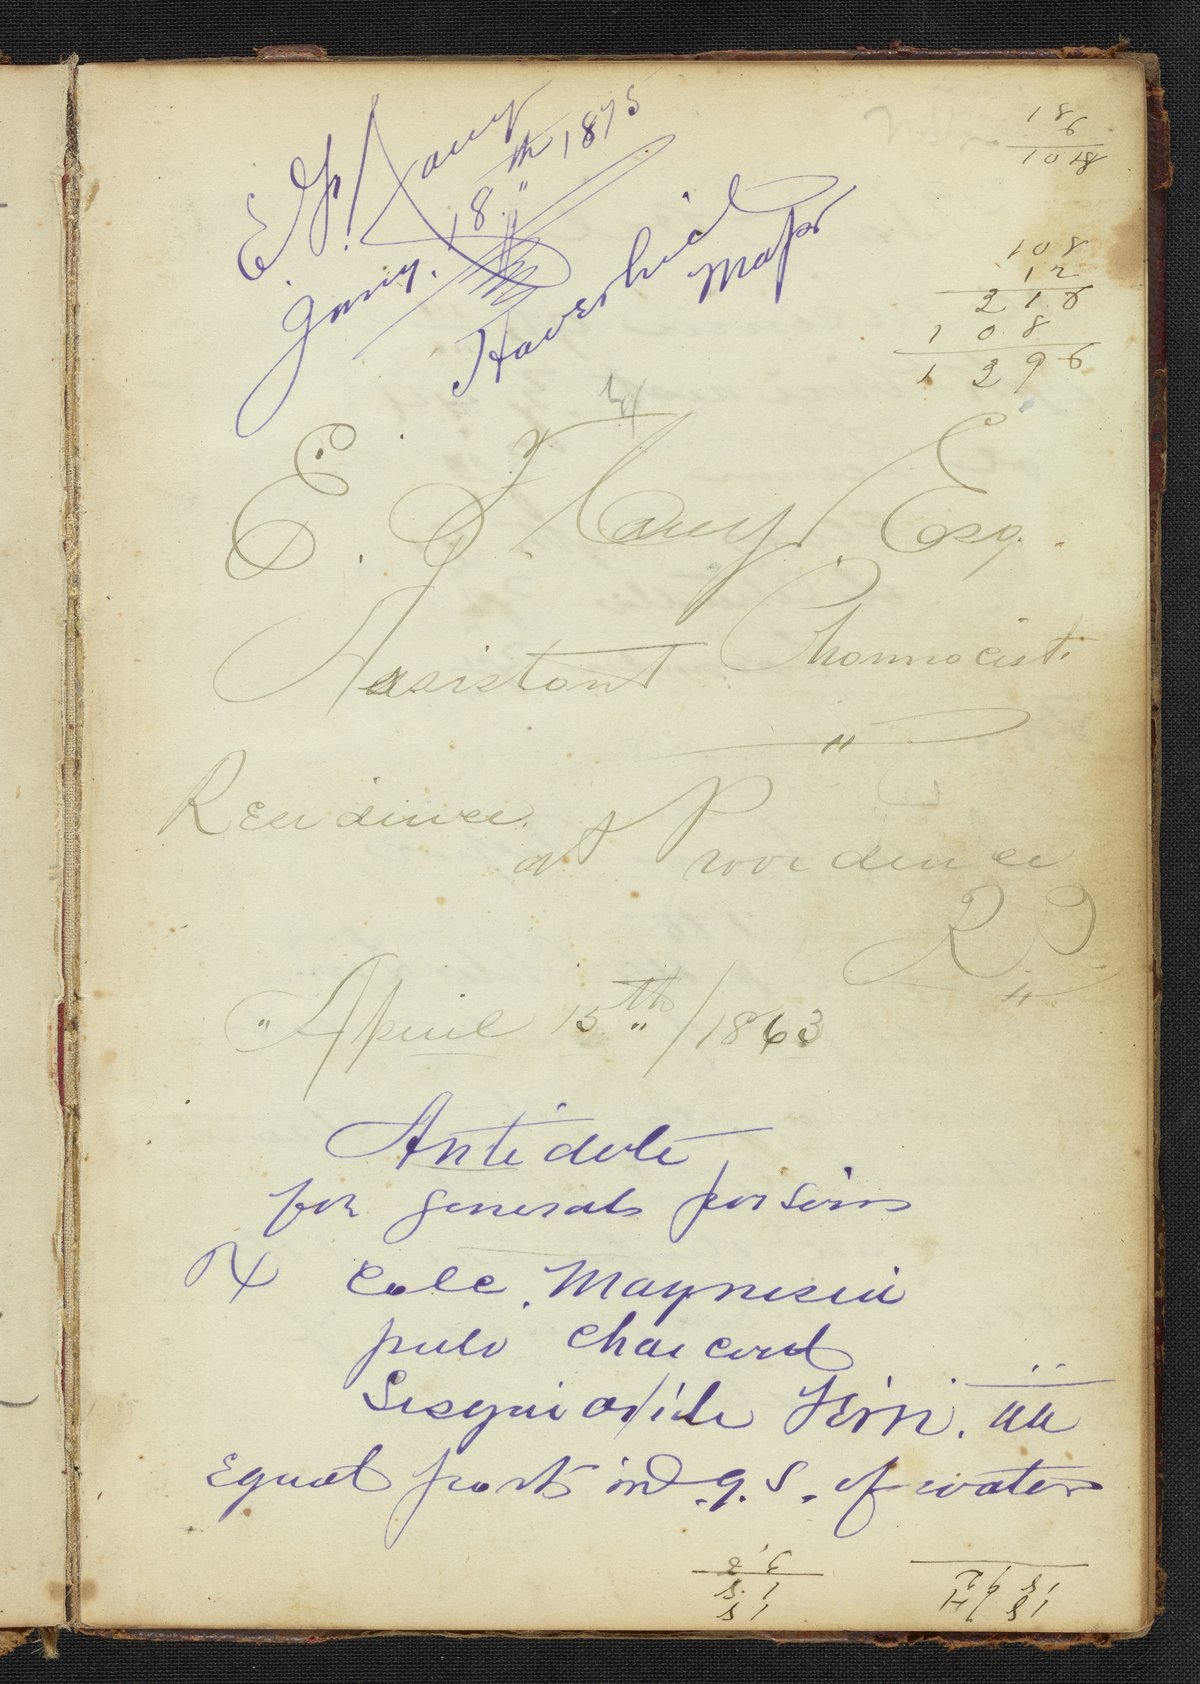 E. F. Kany
Jany. 18th 1875
Haverhill
Mass
18 6
6
10 18
108
12
216
108
1296
E. F. Kany Esq.
Assistant Pharmocist.
Rendince
at Providence
R I
"April 15th" / 1863
Antidote
for generals poisons
℞ Calc. Magnesia
pulv Charcoal
Sesquioxide Ferri. aa
Equal parts in q. S. of water